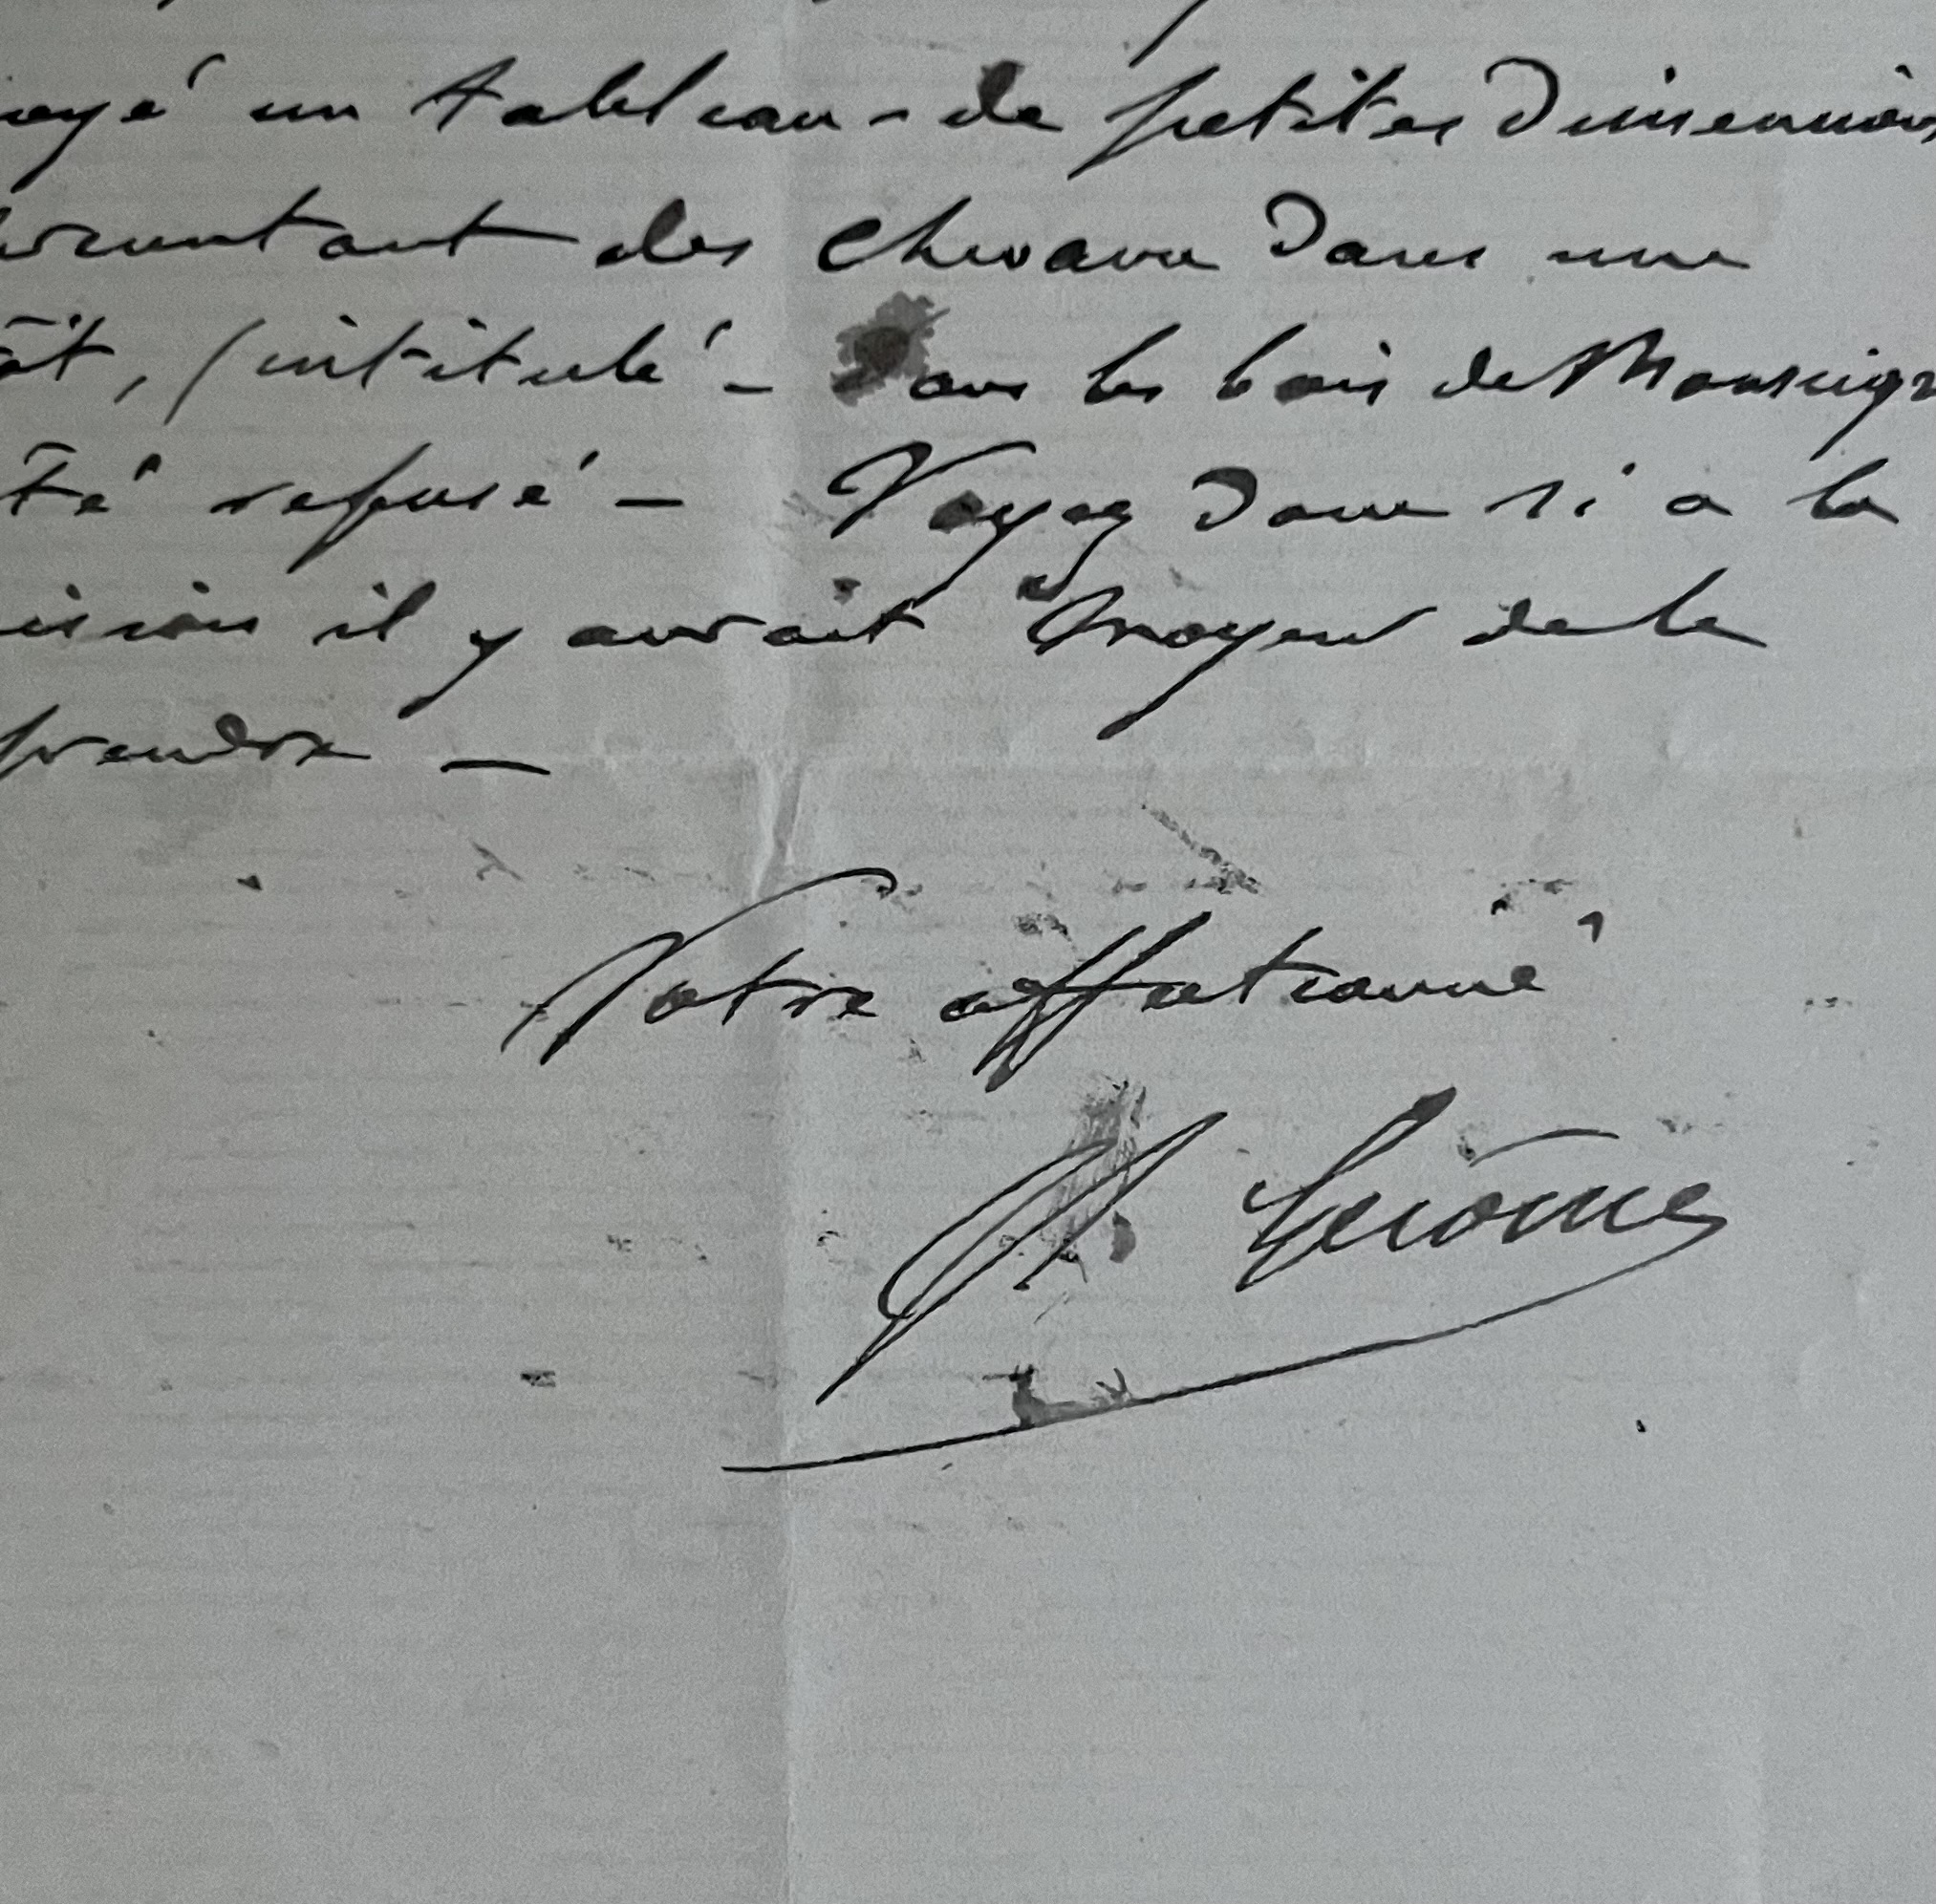 oyé un tableau - de petites dimensions
résentant des chevaux dans une
êt, (intitulé - Dans les bois de Monseign
té refusé - Voyez donc si à la
ision il y aurait moyen de le
prendre -
Votre affectionné
Gérôme